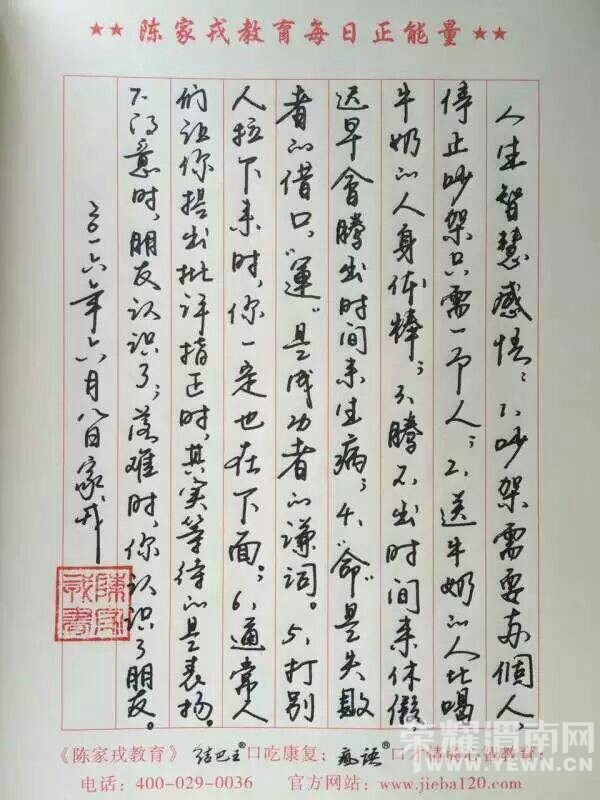 ★★ 陈家戎教育每日正能量 ★★
人生智慧感悟：1、吵架需要两個人，
停止吵架只需一个人；2、送牛奶的人比喝
牛奶的人身体棒；3、腾不出时间来休假，
迟早会腾出时间来生病；4、“命”是失败
者的借口，“運”是成功者的谦词。5、打别
人拉下来时，你一定也在下面。；6、通常人
们让你提出批评指正时，其实等待的是表扬。
7、得意时，朋友认识了，落难时，你认识了朋友。
二〇一六年六月八日家戎
陈家戎書
《陈家戎教育》 结巴主®口吃康复；疯语®口才
电话：400-029-0036 官方网站：www.jieba120.com
荣耀渭南网
WWW.YEWN.CN